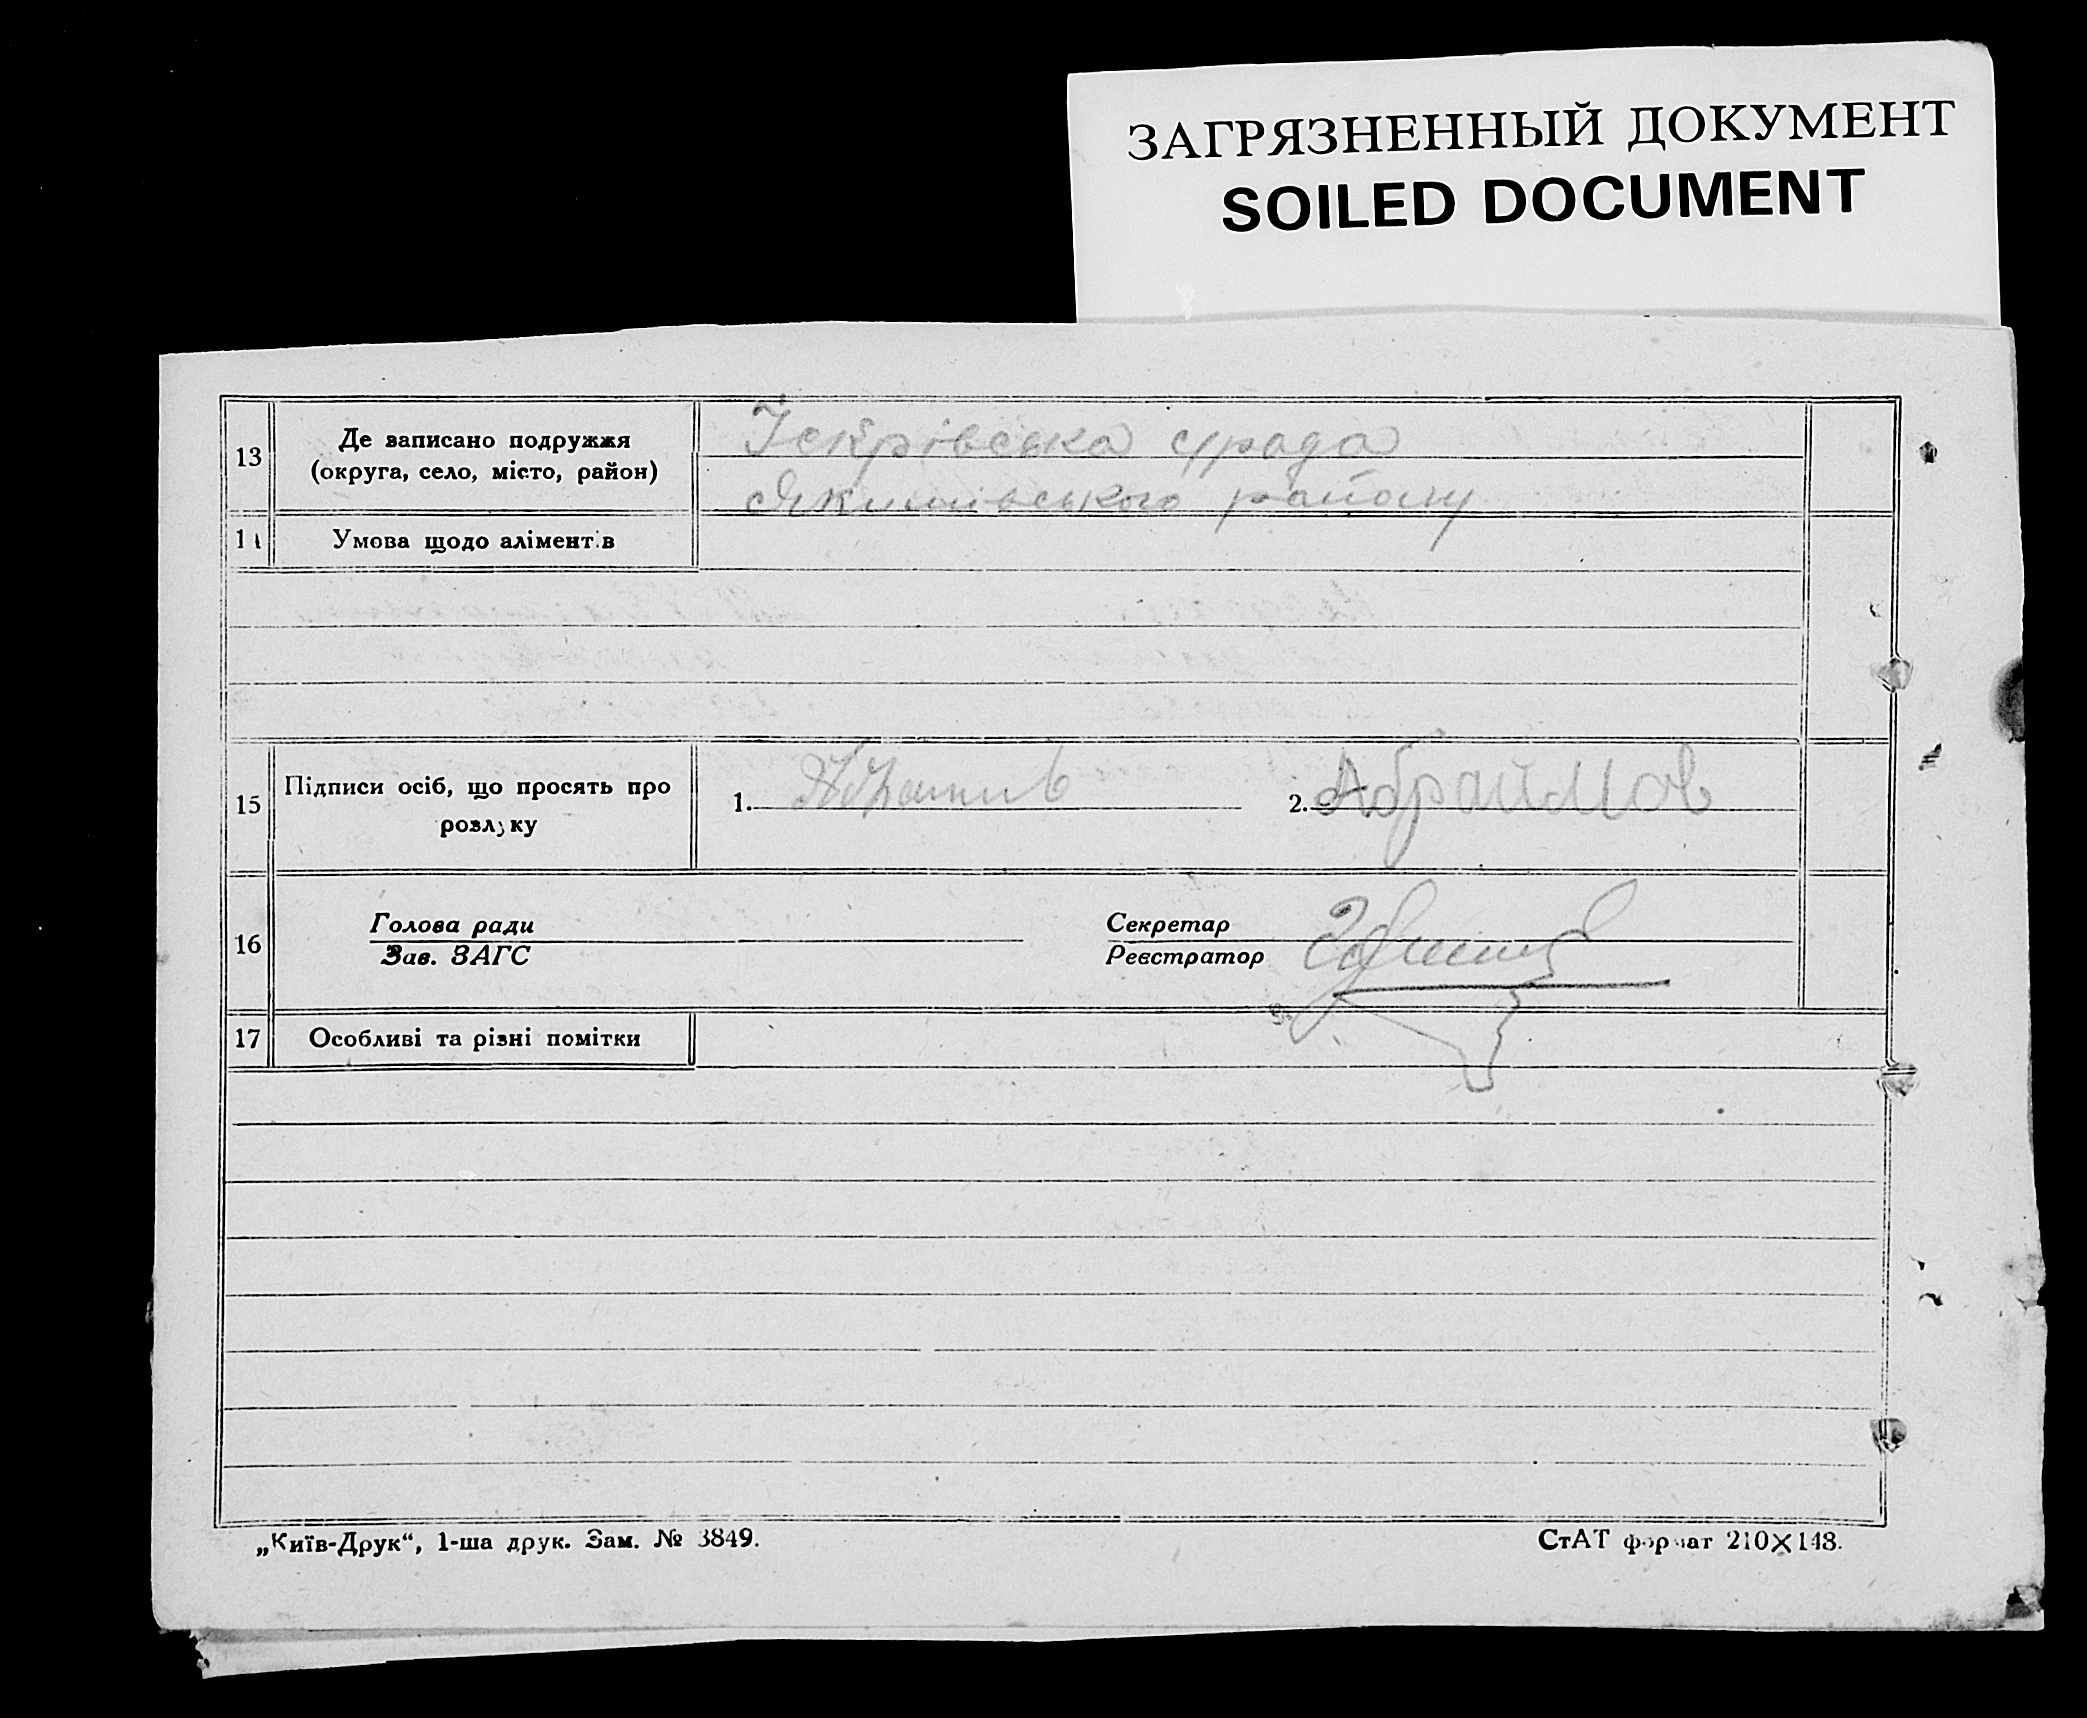 ЗАГРЯЗНЕННЫЙ ДОКУМЕНТ
SOILED DOCUMENT
13
Де записано подружжя
(округа, село, місто, район)
Іскрівська с/рада
Якимівського району
Умова щодо аліментів
15
Підписи осіб, що просять про
розлуку
1.
2. Абраимов
16
Голова ради
Зав. ЗАГС
Секретар
Реєстратор
17
Особливі та різні помітки
„Київ-Друк“, 1-ша друк. Зам. № 3849.
СтАТ формат 210×148.